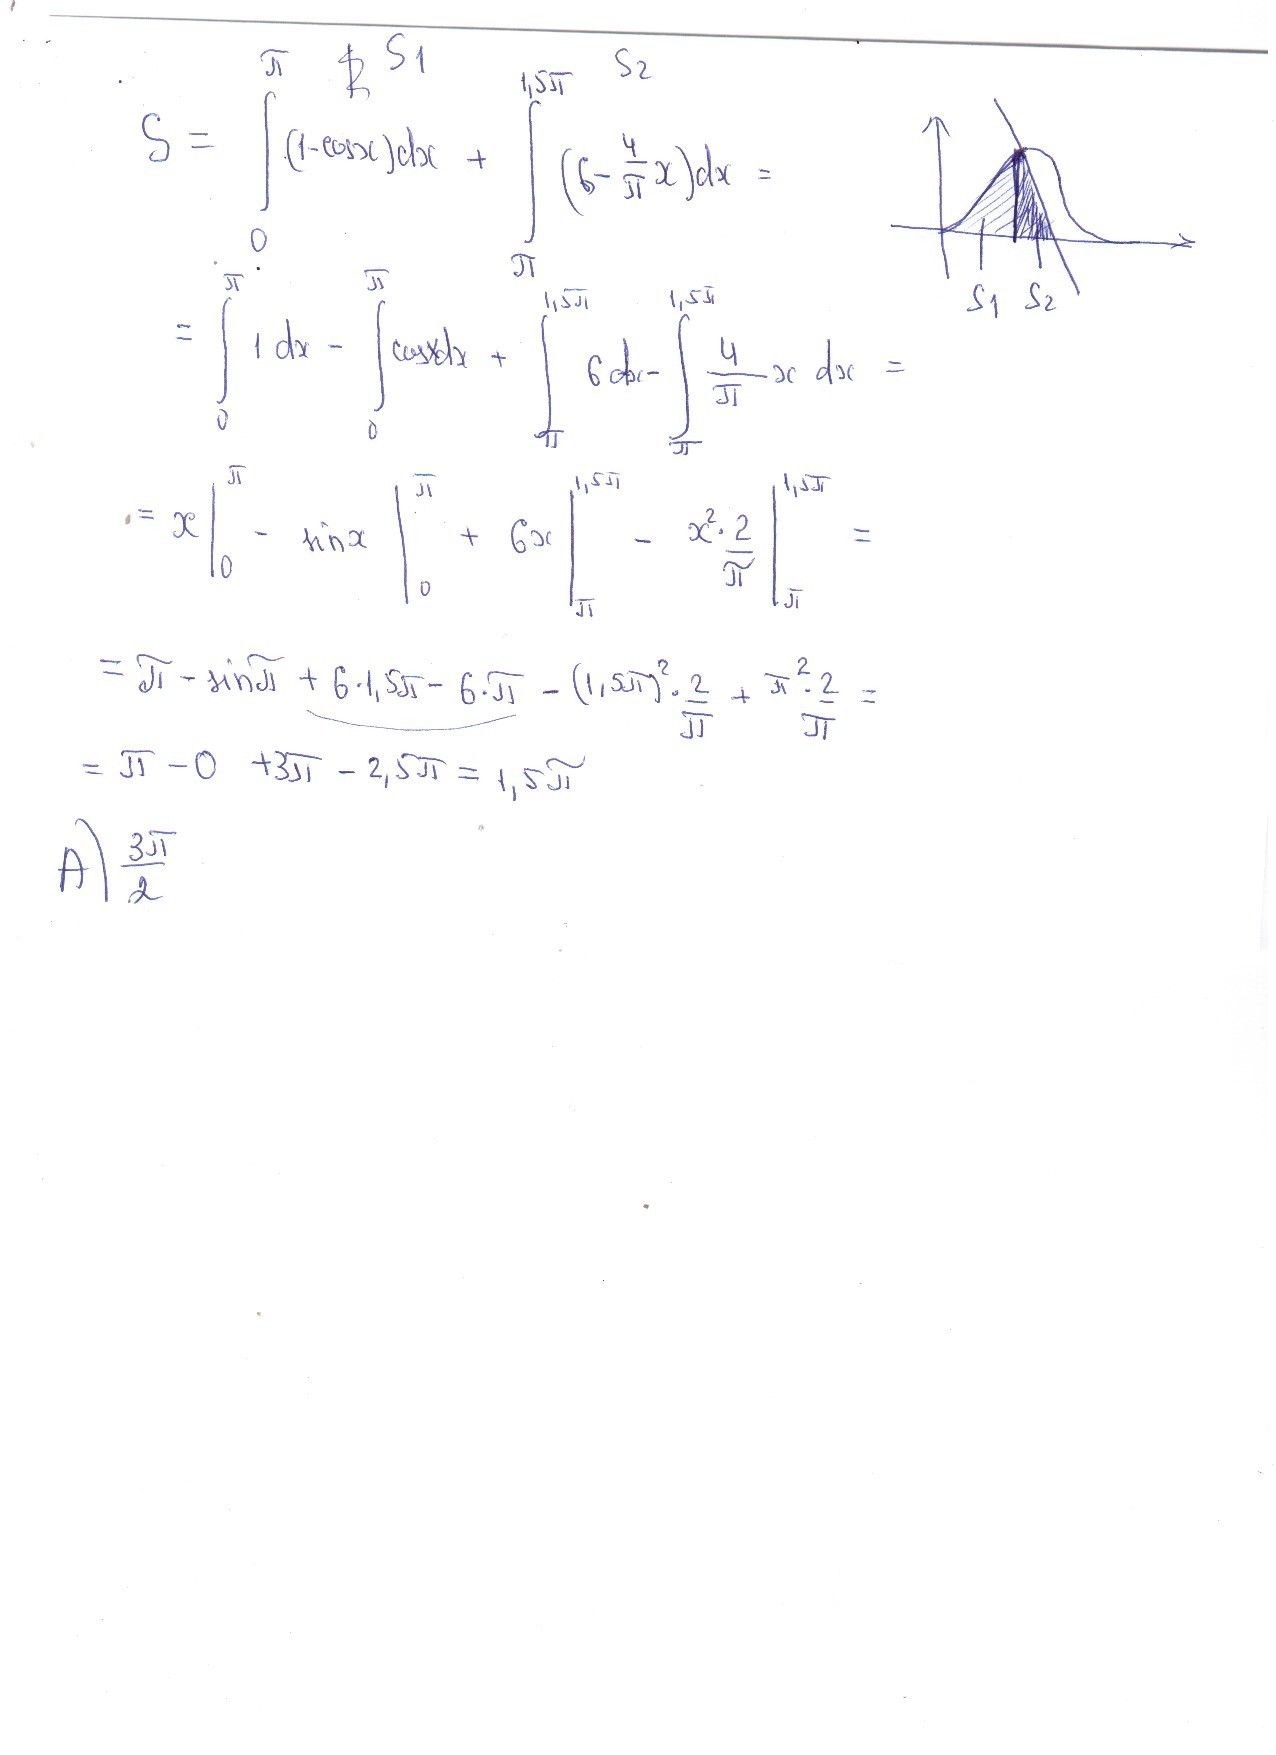 S₁ S₂
S = ∫₀^π (1-cosx)dx + ∫_π^{1,5π} (6-4/π x)dx =
S₁ S₂
= ∫₀^π 1 dx - ∫₀^π cosxdx + ∫_π^{1,5π} 6dx - ∫_π^{1,5π} 4/π x dx =
= x|₀^π - sinx|₀^π + 6x|_π^{1,5π} - x²·2/π|_π^{1,5π} =
= π - sinπ + 6·1,5π - 6·π - (1,5π)²·2/π + π²·2/π =
= π - 0 + 3π - 2,5π = 1,5π
A) 3π/2